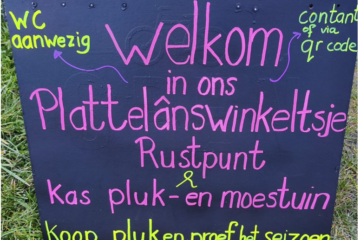 WC
aanwezig
contant
of via
qr code
Welkom
in ons
Plattelânswinkeltsje
Rustpunt
&
Kas pluk- en moestuin
koop pluk en proef het seizoen